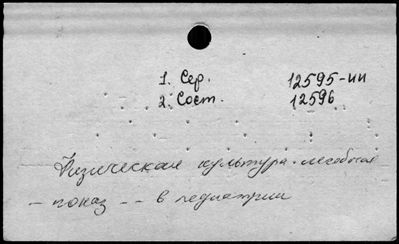 1. Сер. 12595-ии
2. Сост. 12596
Физическая культура лечебная
— показ — — в педиатрии